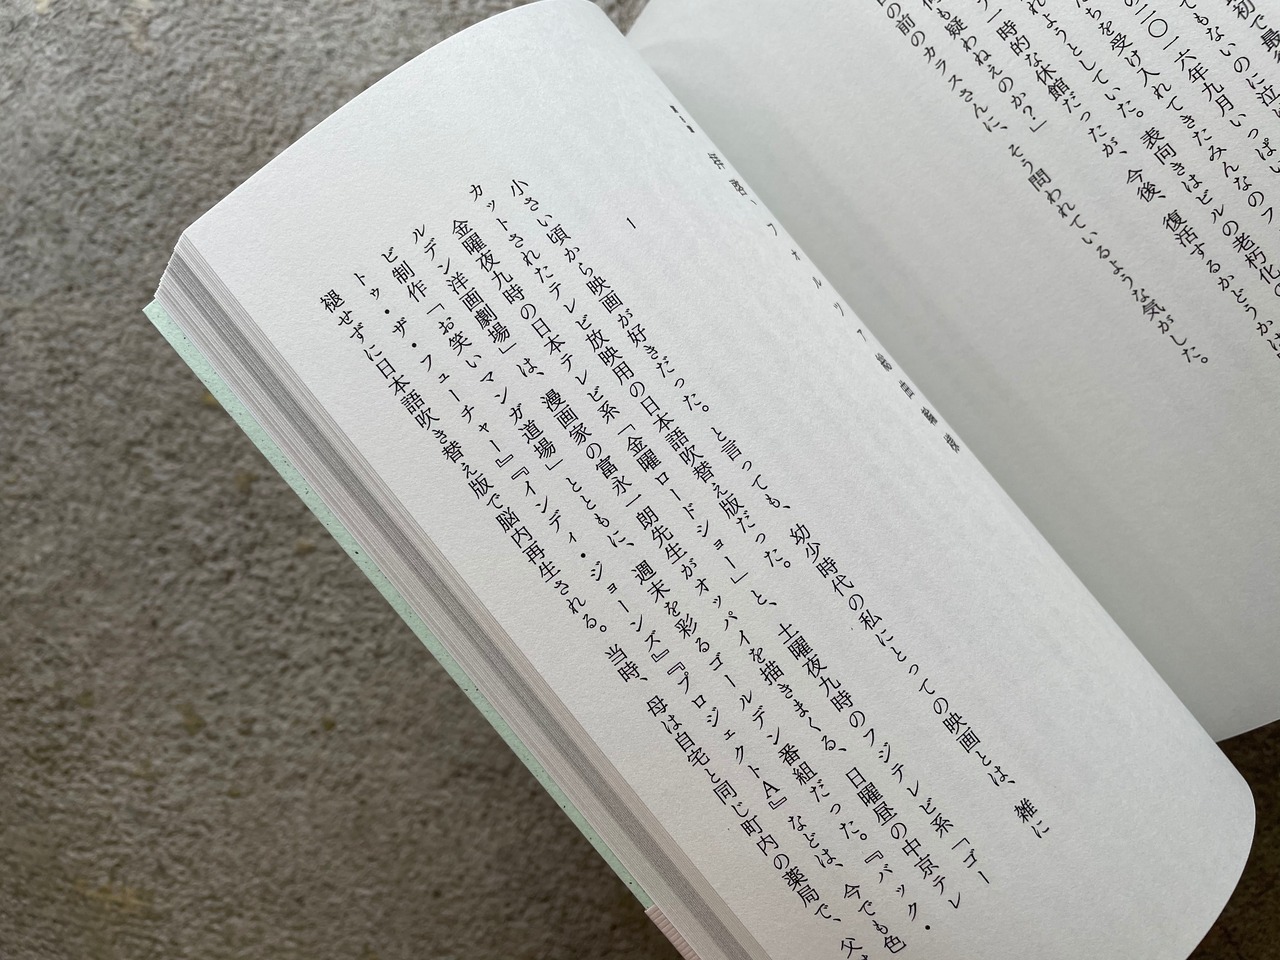 初で最
もないのに泣
二〇一六年九月いっぱい
ちを受け入れてきたみんなのフ
れようとしていた。表向きはビルの老朽化の
一時的な休館だったが、今後、復活するかどうかは
も疑わねえのか？」
の前のカラスさんに、そう問われているような気がした。
フォルツァ総曲輪
1
小さい頃から映画が好きだった。と言っても、幼少時代の私にとっての映画とは、雑に
カットされたテレビ放映用の日本語吹替え版だった。
金曜夜九時の日本テレビ系「金曜ロードショー」と、土曜夜九時のフジテレビ系「ゴー
ルデン洋画劇場」は、漫画家の富永一朗先生がオッパイを描きまくる、日曜昼の中京テレ
ビ制作「お笑いマンガ道場」とともに、週末を彩るゴールデン番組だった。『バック・
トゥ・ザ・フューチャー』『インディ・ジョーンズ』『プロジェクトA』などは、今でも色
褪せずに日本語吹き替え版で脳内再生される。当時、母は自宅と同じ町内の薬局で、父